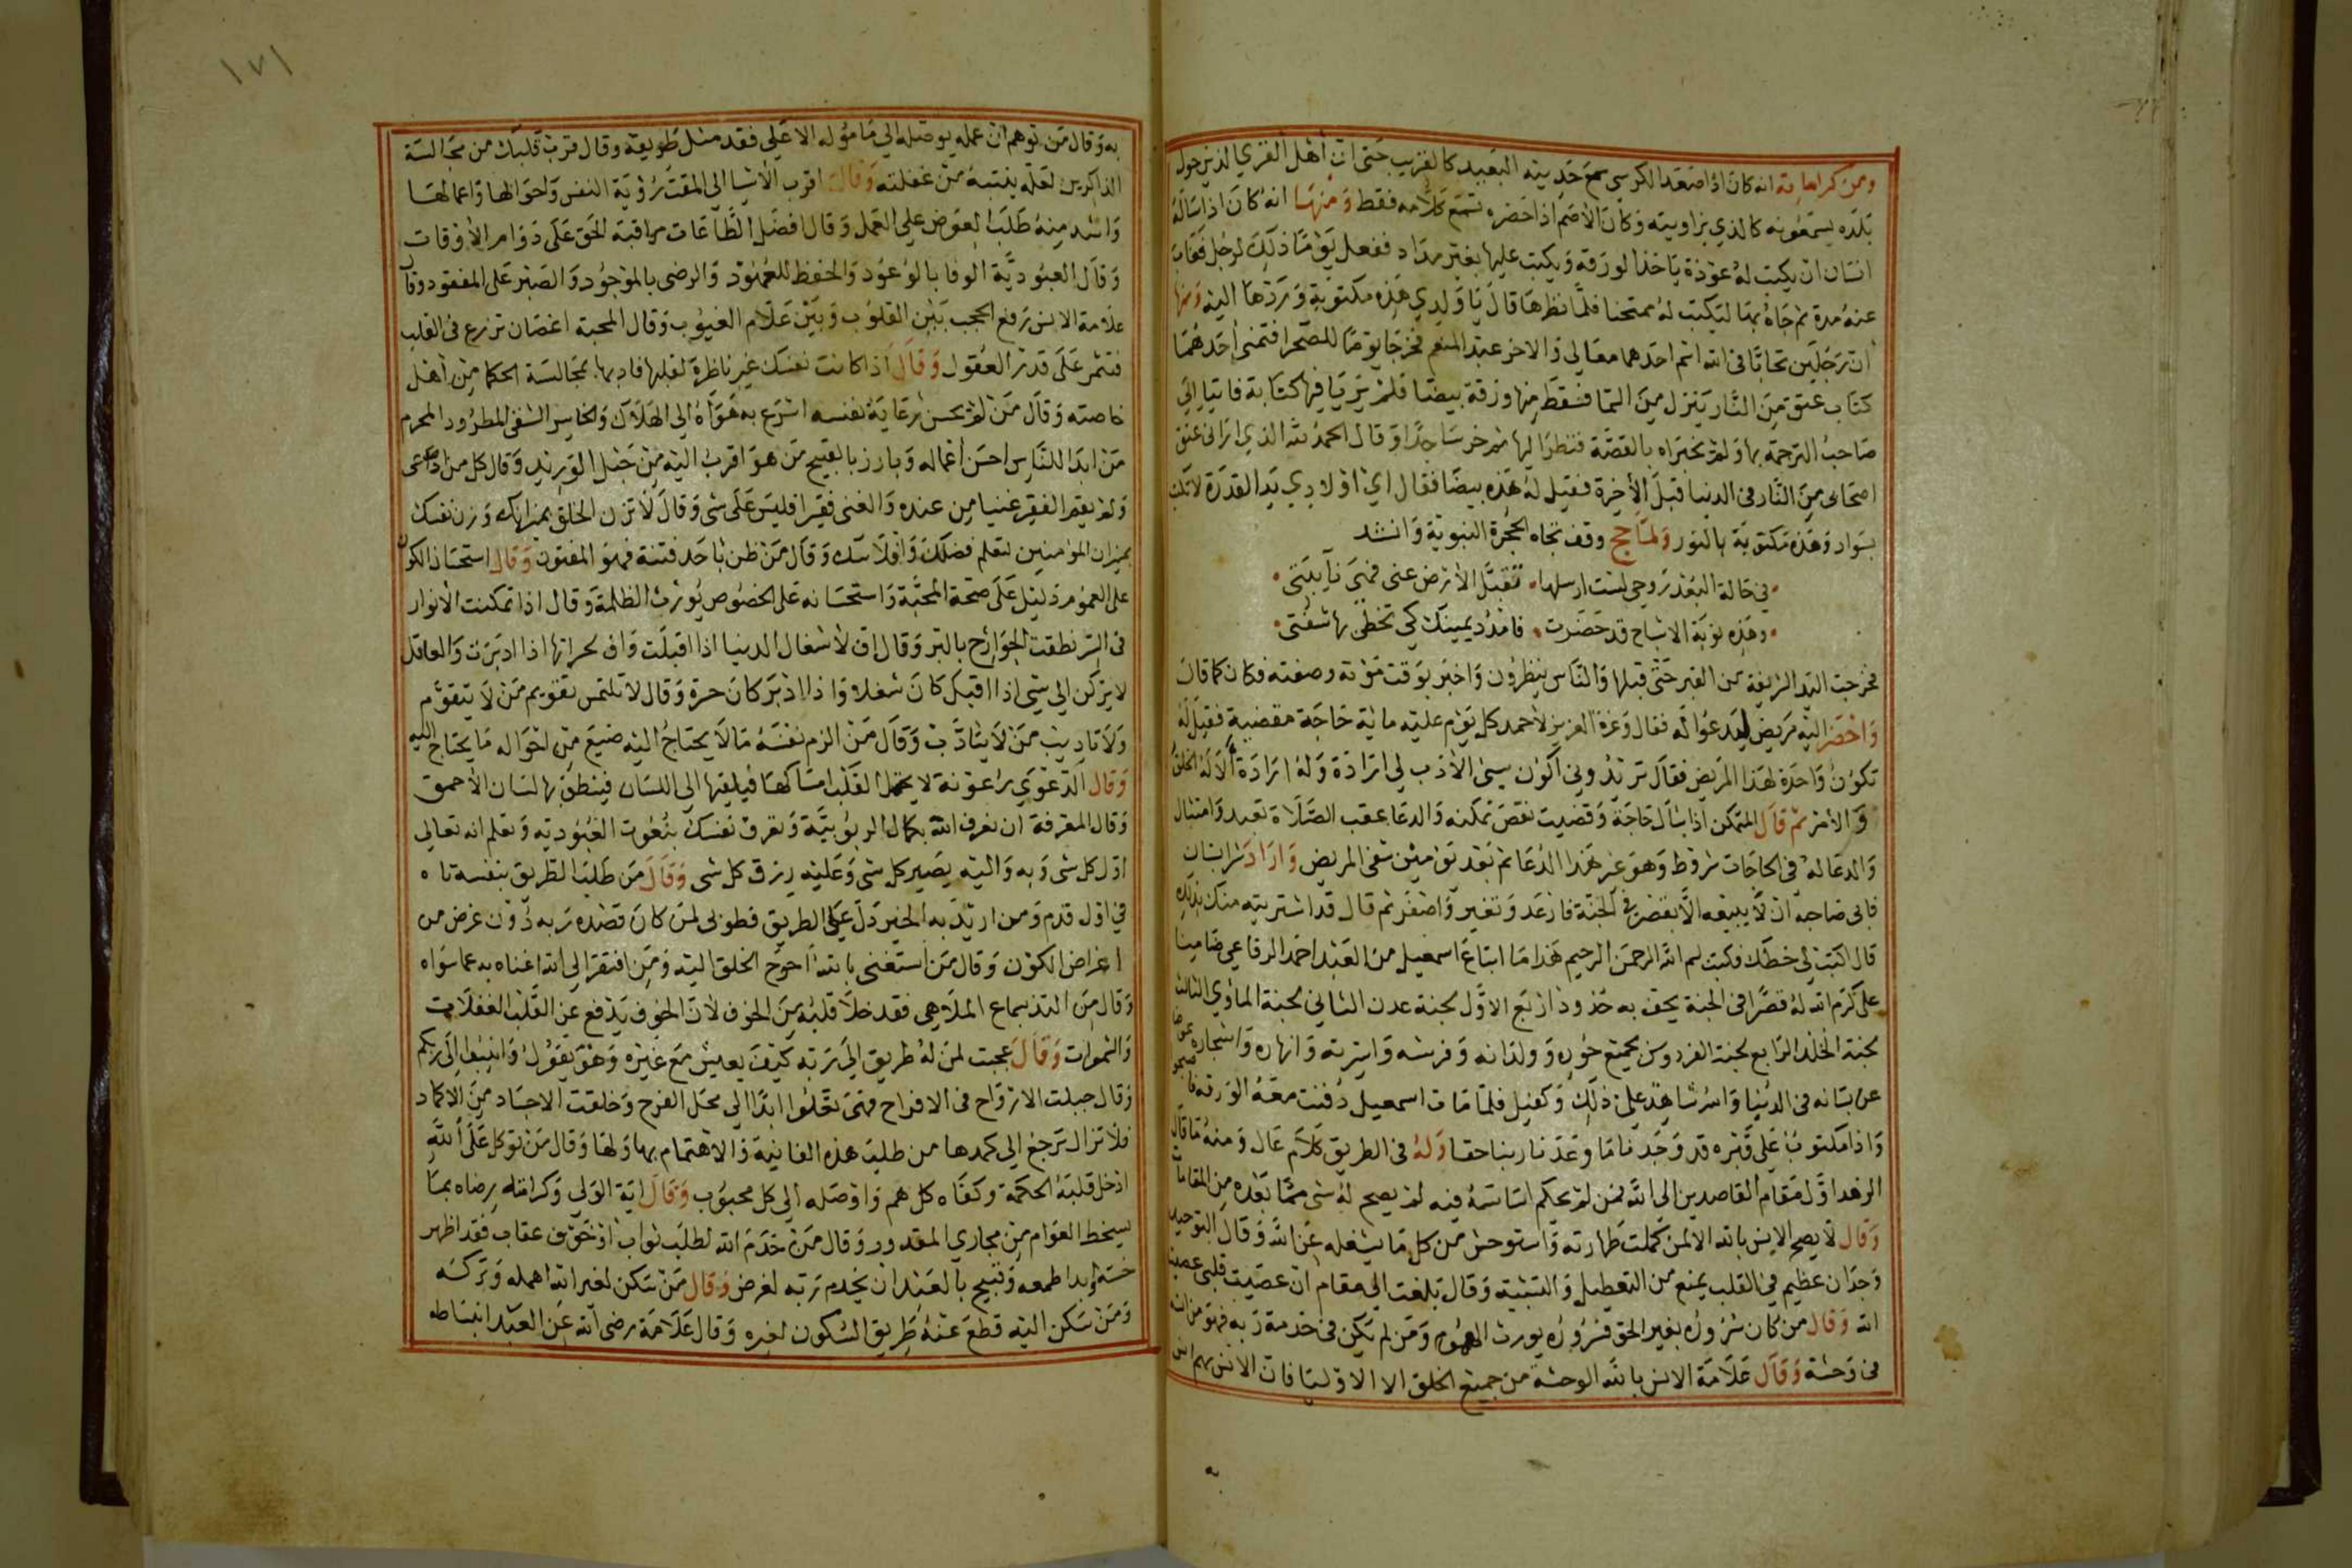 ومن كراماته انه كان اذا صعد الكرسي سمع حديثه البعيد كالقريب حتى ان أهل القرى الذين حول
بلده يسمعونه كالذي بزاويته وكان الأصم اذا حضره يسمع كلامه فقط ومنها انه كان اذا ساله
انسان ان يكتب له عوذة ياخذ الورقة ويكتب عليها بغير مداد ففعل يوما ذلك لرجل فغاب
عنه مدة ثم جاه بها لتكتب له ممتحنا فلما نظرها قال يا ولدي هذه مكتوبة وردها اليه ومنها
ان رجلين تحابا في الله اسم احدهما معالي والاخر عبد المنعم فخرجا يوما للصحرا فتمنى احدهما
كتاب عتق من النار ينزل من السما فسقط منها ورقة بيضا فلم يريا فيها كتابة فاتيا الى
صاحب الترجمة بها ولم يخبراه بالقصة فنظر اليها ثم خر ساجدا وقال الحمد لله الذي اراني عتق
اصحابي من النار في الدنيا قبل الأخرة فقيل له هذه بيضا فقال اي اولادي يد القدرة لا تكتب
بسواد وهذه مكتوبة بالنور ولما حج وقف تجاه الحجرة النبوية وانشد
في حالة البعد روحي كنت ارسلها • تقبل الأرض عني فهي نايبتي •
وهذه نوبة الاشباح قد حضرت • فامدد يمينك كي تحظى بها شفتي •
فخرجت اليد الشريفة من القبر حتى قبلها والناس ينظرون واخبر بوقت موته وصفته فكان كما قال
واحضر اليه مريض ليدعو له فقال وعزة العزيز لأحمد كل يوم عليه ماية حاجة مقضية فقيل له
تكون واحدة لهذا المريض فقال تريدوني أكون سيئ الأدب لي ارادة وله ارادة ألا له الخلق
والأمر ثم قال المتمكن اذا سال حاجة وقضيت نقص تمكنه والدعا عقب الصلاة تعبد وامتثال
والدعا له في الحاجات شروط وهو غير هذا الدعا ثم بعد يومين شفي المريض واراد شرا بستان
فابى صاحبه ان لا يبيعه الا بقصر في الجنة فارعد وتغير واصفر ثم قال قد اشتريته منك بذلك
قال اكتب لي خطك فكتب بسم الله الرحمن الرحيم هذا ما ابتاع اسمعيل من العبد احمد الرفاعي ضامنا
على كرم الله له قصرا في الجنة يحف به حدود اربع الاول لجنة عدن الثاني لجنة الماوى الثالث
لجنة الخلد الرابع لجنة الفردوس بجميع حوره وولدانه وفرشه واسرته وانهاره واشجاره عوضا
عن بستانه في الدنيا والله شاهد على ذلك وكفيل فلما مات اسمعيل دفنت معه الورقة فاصبحوا
واذا مكتوب على قبره قد وجدنا ما وعدنا ربنا حقا وله في الطريق كلام عال ومنه ما قال
الزهد اول مقام القاصدين الى الله فمن لم يحكم اساسه فيه لم يصح له شي مما بعده من المقامات
وقال لا يصح الانس بالله الا لمن كملت طهارته واستوحش من كل ما يشغله عن الله وقال التوحيد
وجدان عظيم في القلب يمنع من التعطيل والتشبيه وقال بلغت الى مقام ان عصيت قلبي عصيت
الله وقال من كان سروره بغير الحق فسروره يورث الهموم ومن لم يكن في خدمة ربه فهو من انسه
في وحشة وقال علامة الانس بالله الوحشة من جميع الخلق الا الاوليا فان الانس بهم انس
١٧١
به وقال من توهم ان عمله يوصله الي مأموله الأعلى فقد ضل طريقه وقال قرب قلبك من مجالسة
الذاكرين لعله ينتبه من غفلته وقال اقرب الأشيا الي المقت رؤية النفس واحوالها واعمالها
واشد منه طلب العوض على العمل وقال افضل الطاعات مراقبة الحق على دوام الأوقات
وقال العبودية الوفا بالوعود والحفظ للعهود والرضى بالموجود والصبر على المفقود وقال
علامة الانس رفع الحجب بين القلوب وبين علام الغيوب وقال المحبة اغصان تزرع في القلب
فتثمر على قدر العقول وقال اذا كانت نفسك غير ناظرة لقلبها فادبها بمجالسة الحكما من أهل
خاصته وقال من لم يحسن رعاية نفسه اسرع به هواه الي الهلاك والخاسر الشقي المطرود المحرم
من ابدا للناس احسن أعماله وبارز بالقبيح من هو اقرب اليه من حبل الوريد وقال كل من ادعى
ولم يقم الفقير غنيا من عنده والغني فقيرا فليس على شي وقال لا تزن الخلق بميزانك وزن نفسك
بميزان المؤمنين لتعلم فضلهم وافلاسك وقال من ظن باحد فتنة فهو المفتون وقال استحسان الكون
على العموم دليل على صحة المحبة واستحسانه على الخصوص يورث الظلمة وقال اذا تمكنت الأنوار
في السر نطقت الجوارح بالبر وقال ان لأشغال الدنيا اذا اقبلت واف لحسراتها اذا ادبرت والعاقل
لا يركن الي شي اذا اقبل كان شغلا واذا ادبر كان حسرة وقال لا تلتمس تقويم من لا يتقوم
ولا تاديب من لا يتادب وقال من الزم نفسه ما لا يحتاج اليه ضيع من احواله ما يحتاج اليه
وقال الدعوى رعونة لا يحتمل القلب امساكها فيلقيها الي اللسان فينطق بها لسان الأحمق
وقال المعرفة ان تعرف الله بكمال الربوبية وتعرف نفسك بنعوت العبودية وتعلم انه تعالى
اول كل شي وبه واليه يصير كل شي وعليه رزق كل شي وقال من طلب الطريق بنفسه تاه
في اول قدم ومن اريد به الخير دل على الطريق فطوبى لمن كان قصده ربه دون غرض من
اغراض الكون وقال من استغنى بالله احوج الخلق اليه ومن افتقر الى الله اغناه به عما سواه
وقال من التذ بسماع الملاهي فقد خلا قلبه من الخوف لأن الخوف يدفع عن القلب الغفلات
والشهوات وقال عجبت لمن له طريق الى ربه كيف يعيش مع غيره وهو يقول وانيبوا الى ربكم
وقال جبلت الارواح في الافراح فهي تعلوا ابدا الي محل الفرح وخلقت الاجساد من الاكماد
فلا تزال ترجع الي كمدها من طلب هذه الفانية والاهتمام بها ولها وقال من توكل على الله
ادخل قلبه الحكمة وكفاه كل هم واوصله الي كل محبوب وقال اية الولي وكرامته رضاه بما
يسخط العوام من مجاري المقدور وقال من خدم الله لطلب ثواب او خوف عقاب فقد اظهر
خسته وابدا طمعه وقبيح بالعبد ان يخدم ربه لغرض وقال من سكن لغير الله اهمله وتركه
ومن سكن اليه قطع عنه طريق السكون لغيره وقال علامة رضى الله عن العبد انبساطه